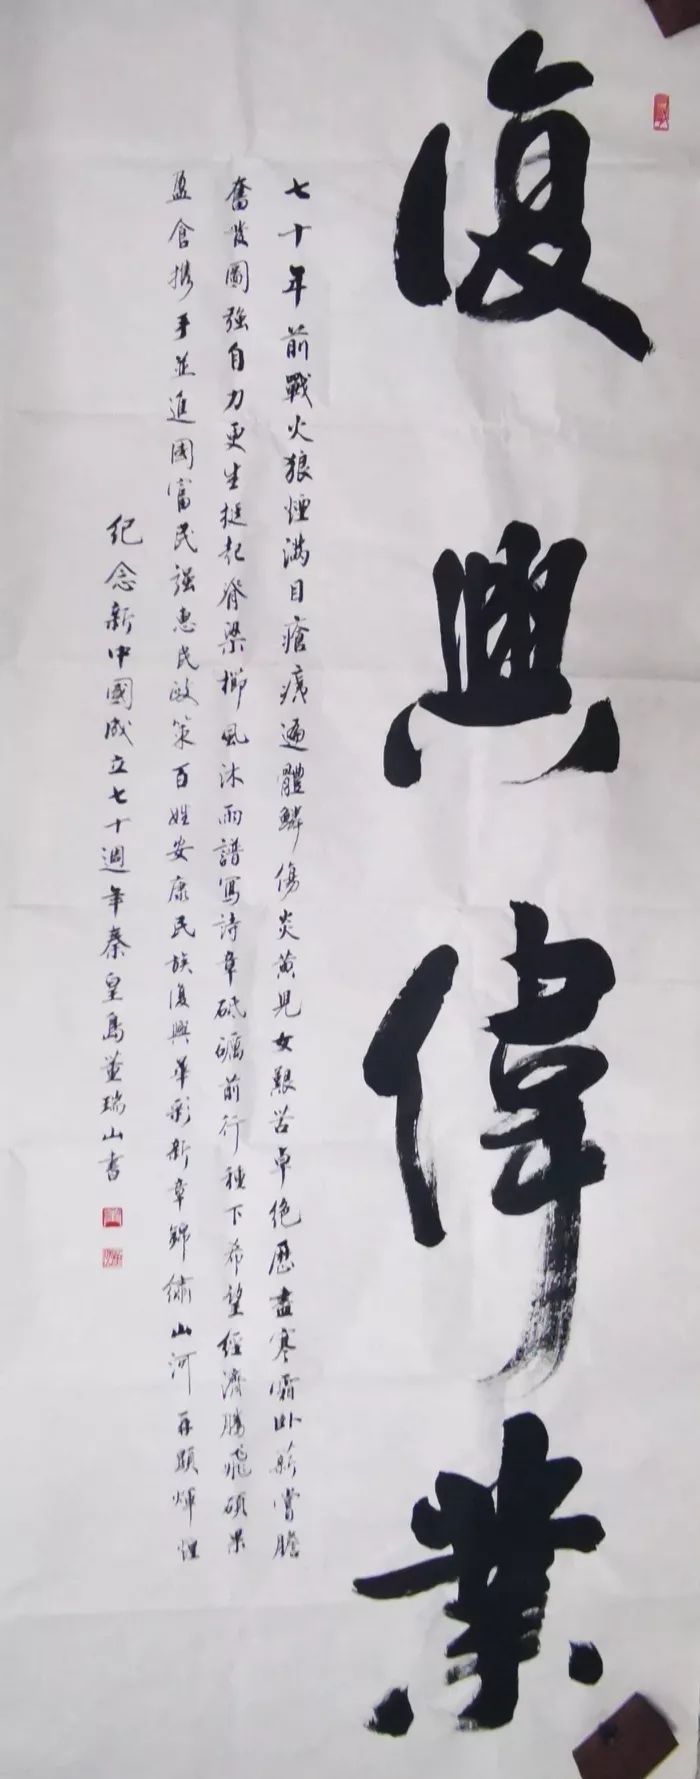 復興偉業
七十年前戰火狼煙滿目瘡痍遍體鱗傷炎黃兒女艱苦卓絕歷盡寒霜卧薪嘗膽
奮發圖強自力更生挺起脊梁櫛風沐雨譜寫詩章砥礪前行種下希望經濟騰飛碩果
盈倉携手並進國富民強惠民政策百姓安康民族復興華彩新章錦繡山河再顯輝煌
紀念新中國成立七十週年秦皇島董瑞山書